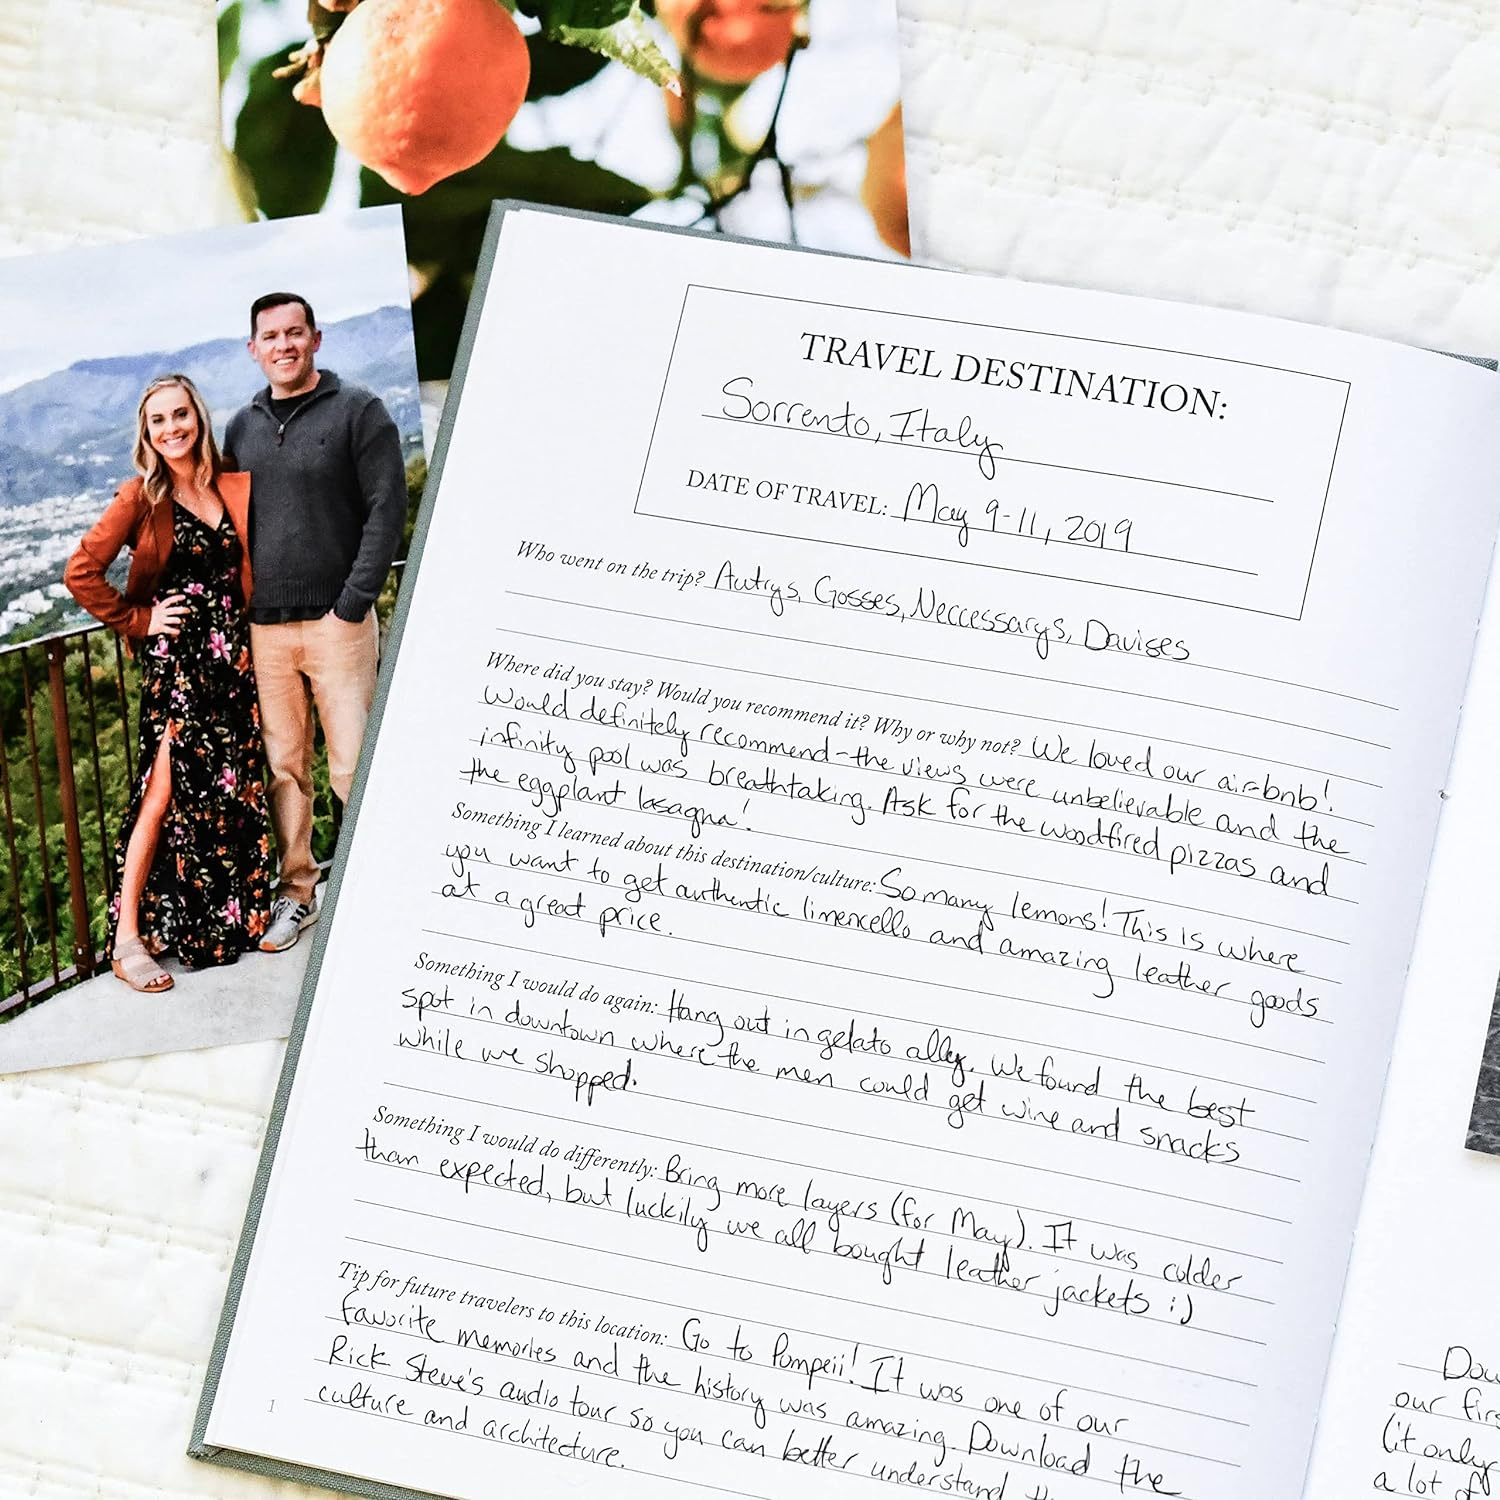 TRAVEL DESTINATION:
Sorrento, Italy
DATE OF TRAVEL: May 9-11, 2019
Who went on the trip? Autrys, Gosses, Neccessarys, Davises
Where did you stay? Would you recommend it? Why or why not? We loved our airbnb!
Would definitely recommend - the views were unbelievable and the
infinity pool was breathtaking. Ask for the woodfired pizzas and
the eggplant lasagna!
Something I learned about this destination/culture: So many lemons! This is where
you want to get authentic limencello and amazing leather goods
at a great price.
Something I would do again: Hang out in gelato ally. We found the best
spot in downtown where the men could get wine and snacks
while we shopped.
Something I would do differently: Bring more layers (for May). It was colder
than expected, but luckily we all bought leather jackets :)
Tip for future travelers to this location: Go to Pompeii! It was one of our
favorite memories and the history was amazing. Download the
Rick Steve's audio tour so you can better understand
culture and architecture.
1
our
(it only
a lot of